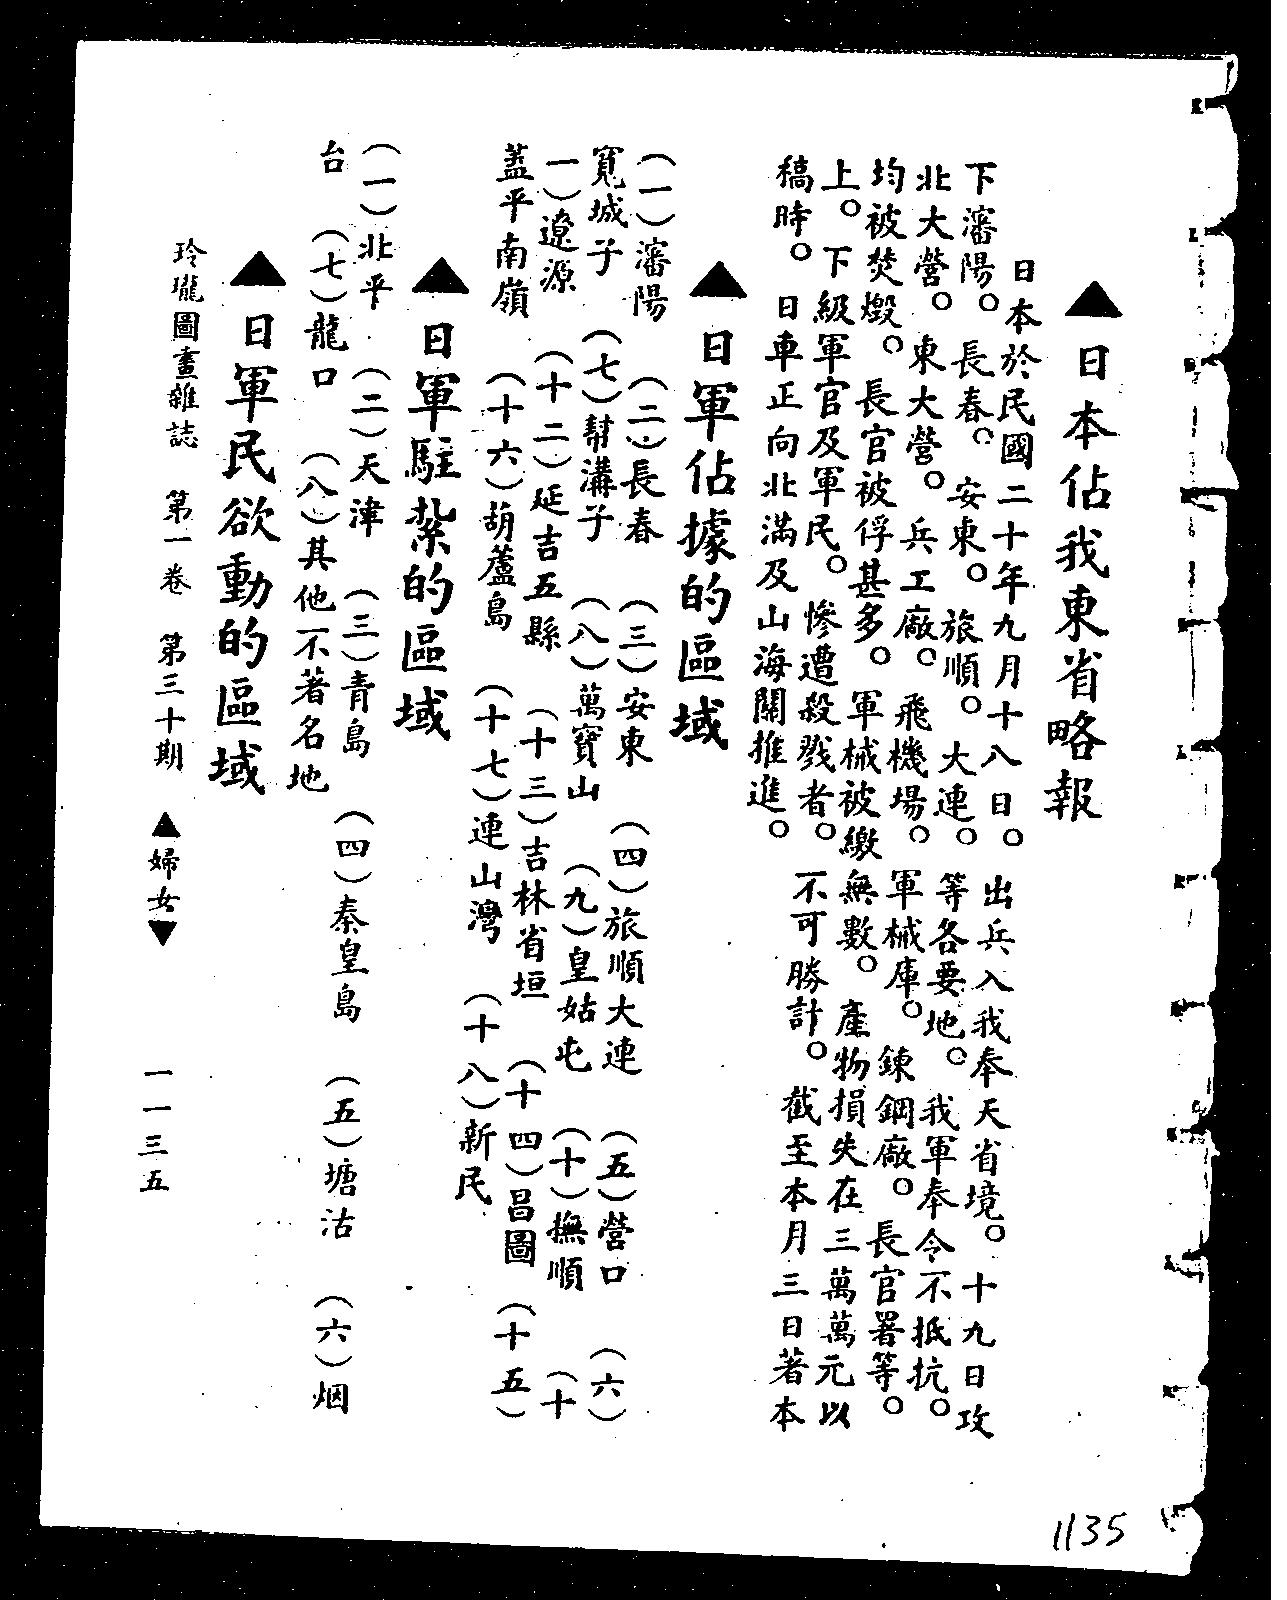 ▲日本佔我東省略報
日本於民國二十年九月十八日。出兵入我奉天省境。十九日攻
下瀋陽。長春。安東。旅順。大連。等各要地。我軍奉令不抵抗。
北大營。東大營。兵工廠。飛機場。軍械庫。鍊鋼廠。長官署等。
均被焚燬。長官被俘甚多。軍械被繳無數。產物損失在三萬萬元以
上。下級軍官及軍民。慘遭殺戮者。不可勝計。截至本月三日著本
稿時。日車正向北滿及山海關推進。
▲日軍佔據的區域
(一)瀋陽 (二)長春 (三)安東 (四)旅順大連 (五)營口 (六)
寬城子 (七)幇溝子 (八)萬寶山 (九)皇姑屯 (十)撫順 (十
一)遼源 (十二)延吉五縣 (十三)吉林省垣 (十四)昌圖 (十五)
蓋平南嶺 (十六)葫蘆島 (十七)連山灣 (十八)新民
▲日軍駐紮的區域
(一)北平 (二)天津 (三)青島 (四)秦皇島 (五)塘沽 (六)烟
台 (七)龍口 (八)其他不著名地
▲日軍民欲動的區域
玲瓏圖畫雜誌 第一卷 第三十期 ▲婦女▼ 一一三五
1135